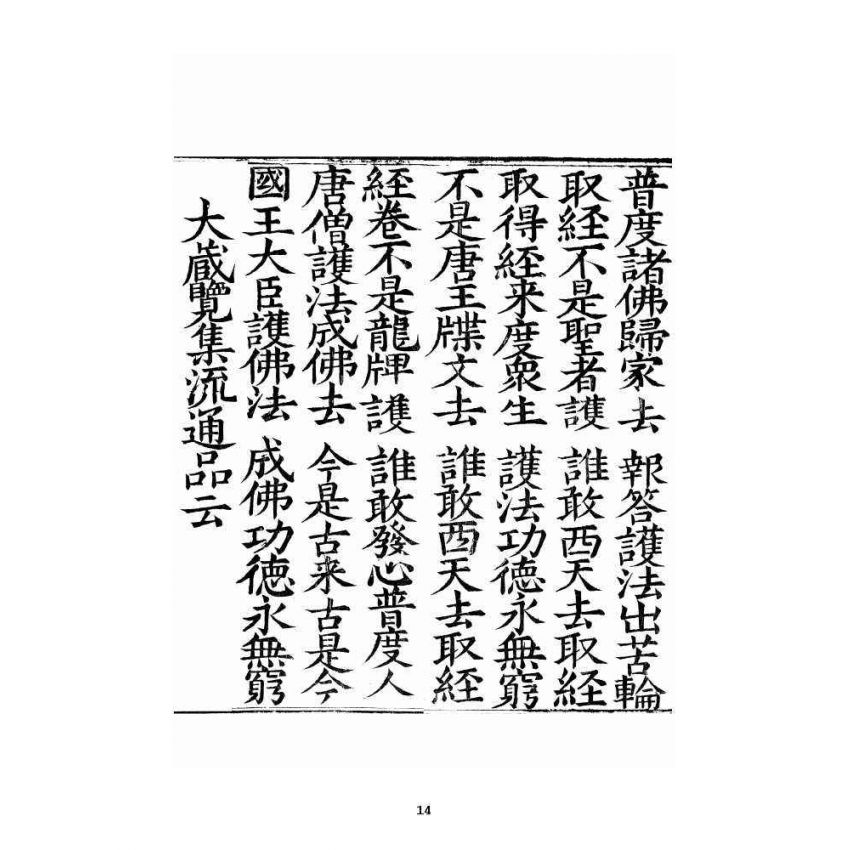 普度諸佛歸家去 報答護法出苦輪
取経不是聖者護 誰敢西天去取経
取得経来度衆生 護法功德永無窮
不是唐王牒文去 誰敢西天去取経
経卷不是龍牌護 誰敢發心普度人
唐僧護法成佛去 今是古来古是今
國王大臣護佛法 成佛功德永無窮
大蔵覽集流通品云
14